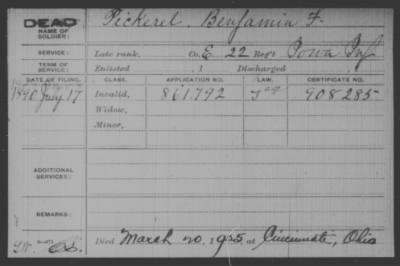 DEAD Pickerel, Benjamin F.
NAME OF SOLDIER:
SERVICE: Late rank, Co. E 22 Reg't Iowa Inf
TERM OF SERVICE: Enlisted , 1 Discharged
DATE OF FILING. CLASS. APPLICATION NO. LAW. CERTIFICATE NO.
1890 July 17 Invalid, 861.792 908285
Widow,
Minor,
ADDITIONAL SERVICES:
REMARKS:
Died March 20, 1925, at Cincinnati, Ohio